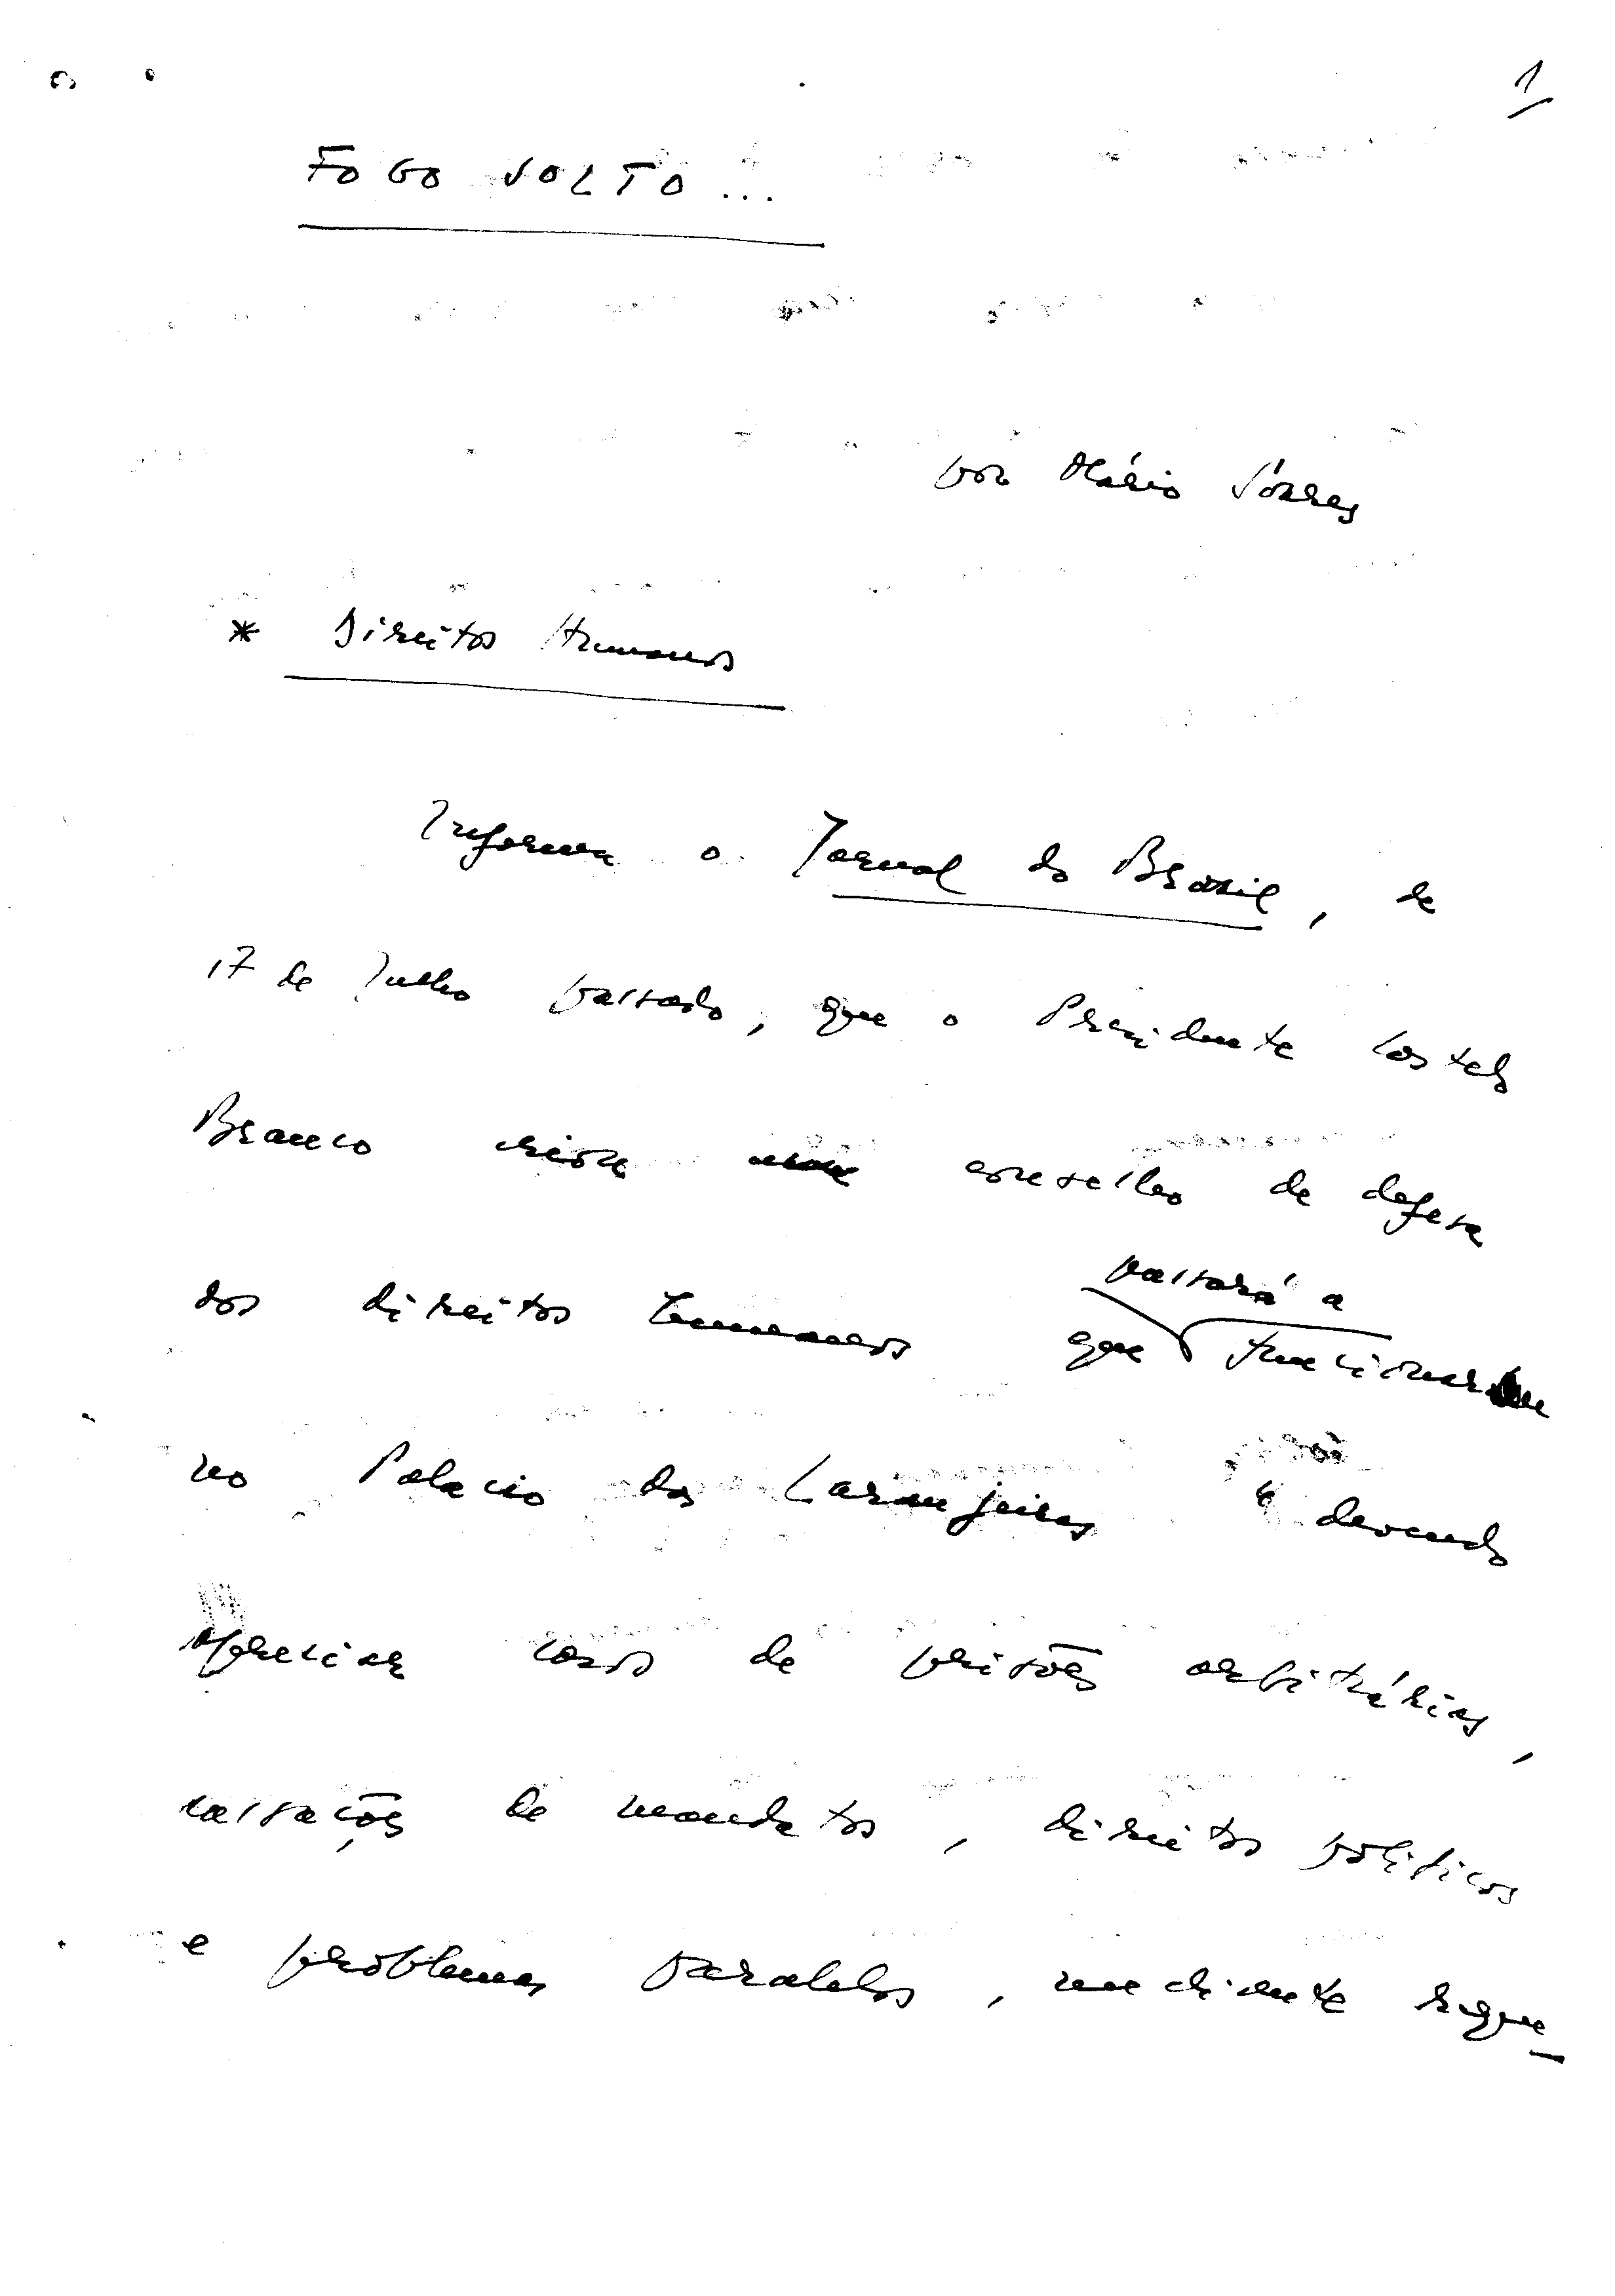 1
FOGO SOLTO...
por Mário Soares
* Direitos Humanos
Informa o Jornal do Brasil, de
17 de Julho passado, que o Presidente Castelo
Branco criou um conselho de defesa
passará a
dos direitos humanos que funcionar
no Palacio das Laranjeiras e devendo
apreciar casos de prisões arbitrárias,
cassações de mandatos, direitos politicos
e problemas paralelos, mediante reque-